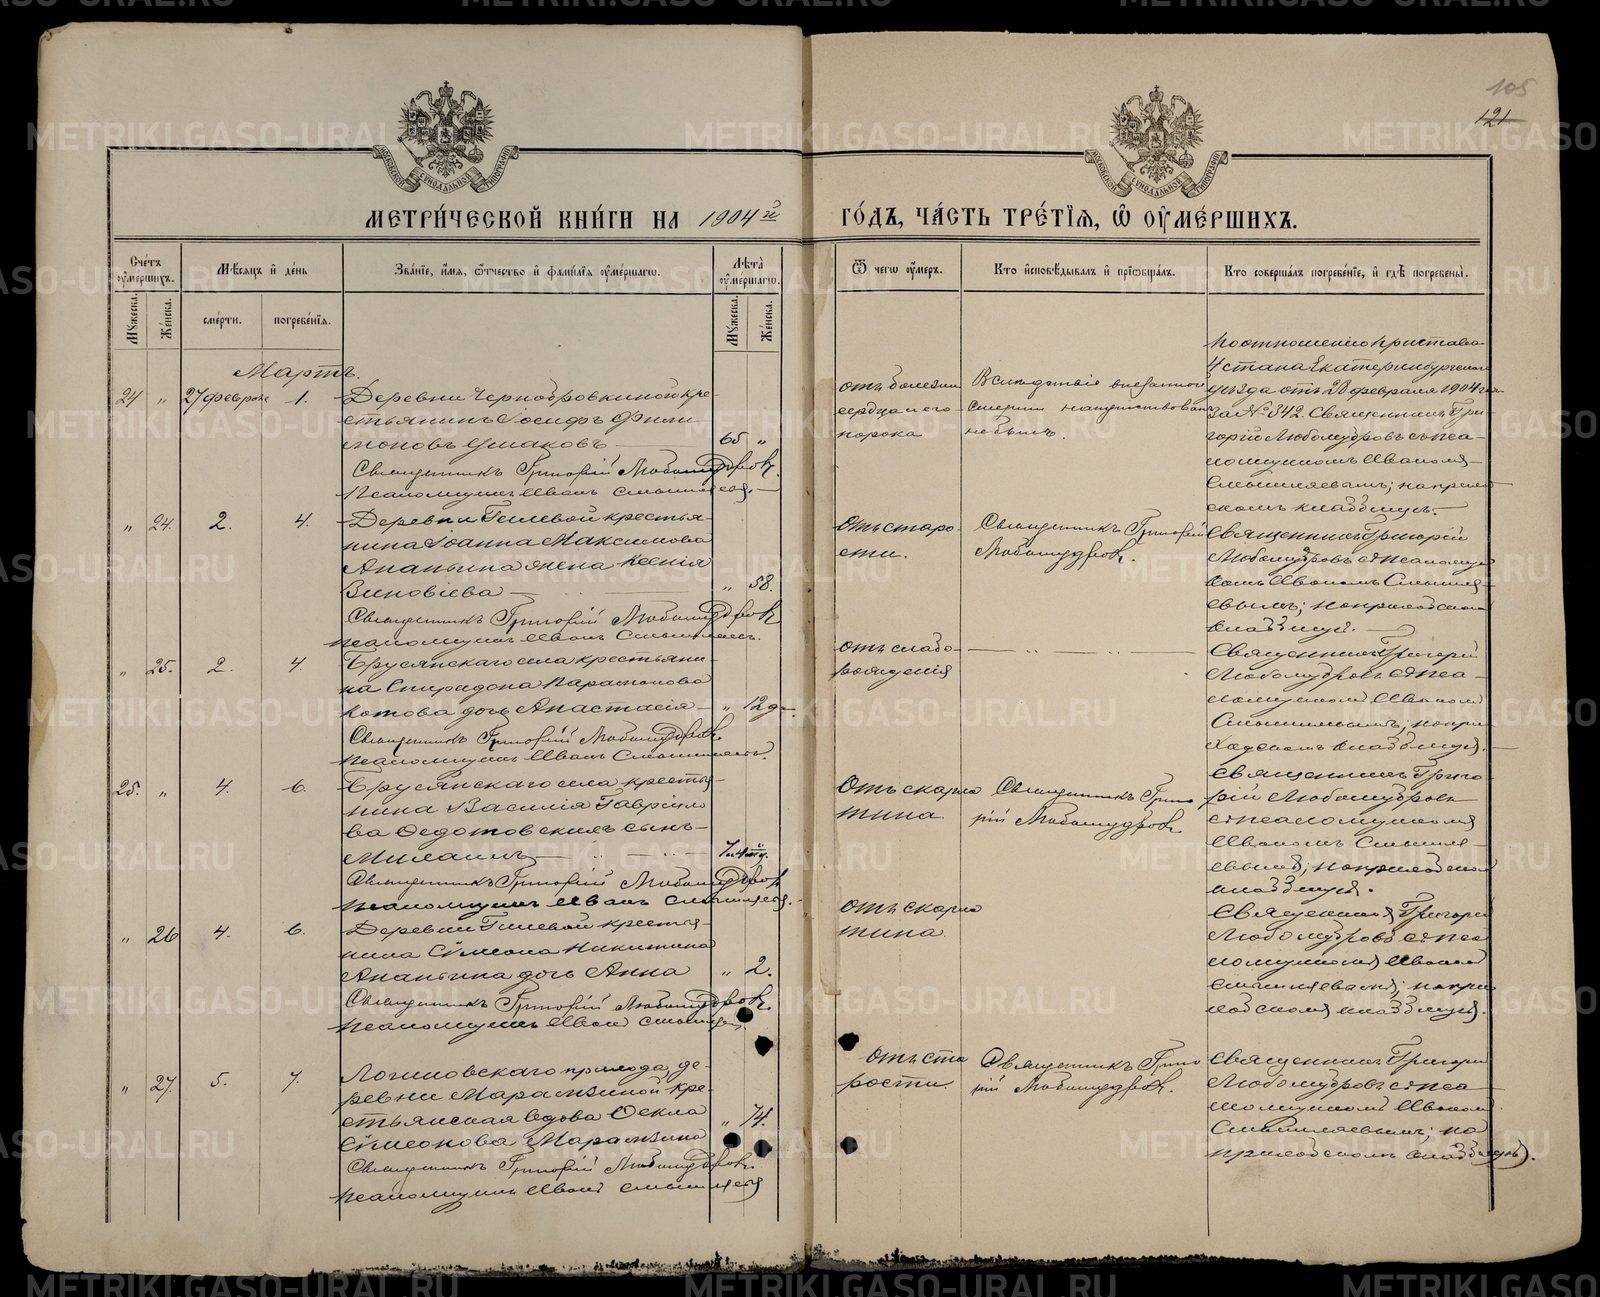 105
121
МЕТРИ́ЧЕСКОЙ КНИ́ГИ НА 1904 й
ГО́ДЪ, ЧА́СТЬ ТРЕ́ТІЯ, Ѿ ОУМЕ́РШИХЪ.
Сче́тъ оумершихъ.
Мѣсяцъ и де́нь
Зва́ніе, и́мя, о́тчество и фами́лія оуме́ршагѡ.
Лѣта̀ оуме́ршагѡ.
Ѿ чегѡ оу́меръ.
Кто исповѣ́дывалъ и пріѡбща́лъ.
Кто соверша́лъ погребе́ніе, и гдѣ погребены̀.
Му́жеска.
Же́нска.
сме́рти.
погребе́нія.
Му́жеска.
Же́нска.
Мартъ.
24 „ 27 февраля 1.
Деревни Чернобровкиной кре-
стьянинъ Іосифъ Фили
моновъ Ушаковъ — 65 „
Священникъ Григорій Любомудровъ.
Псаломщикъ Иванъ Смышляевъ.
отъ болезни
сердца его
порока
Вследствіе внезапной
смерти напутствованъ
не былъ.
По отношенію пристава
4 стана Екатеринбургскаго
уѣзда отъ 28 февраля 1904 го
за № 342. Священникъ Гри-
горій Любомудровъ съ пса-
ломщикомъ Иваномъ
Смышляевымъ; на приход
скомъ кладбищѣ.
„ 24. 2. 4.
Деревни Гилевой крестья-
нина Іоанна Максимова
Ананьина жена Ксенія
Зиновіева — „ 58.
Священникъ Григорій Любомудровъ
Псаломщикъ Иванъ Смышляевъ.
Отъ старо-
сти.
Священникъ Григорій
Любомудровъ.
Священникъ Григорій
Любомудровъ съ псаломщи
комъ Иваномъ Смышля-
евымъ; на приходскомъ
кладбищѣ.
„ 25. 2. 4.
Брусянскаго села крестьяни-
на Спиридона Парамонова
Котова дочь Анастасія — „ 12 д.
Священникъ Григорій Любомудровъ
Псаломщикъ Иванъ Смышляевъ.
отъ слабо-
рожденія
Священникъ Григорій
Любомудровъ съ пса-
ломщикомъ Иваномъ
Смышляевымъ; на при-
ходскомъ кладбищѣ.
25. „ 4. 6.
Брусянскаго села крестья-
нина Василія Гаврило
ва Федотовскихъ сынъ
Михаилъ —
Священникъ Григорій Любомудровъ
Псаломщикъ Иванъ Смышляевъ.
Отъ скарла
тина.
Священникъ Григо
рій Любомудровъ
Священникъ Григо-
рій Любомудровъ
съ псаломщикомъ
Иваномъ Смышля-
евымъ; на приходскомъ
кладбищѣ.
„ 26 4. 6.
Деревни Гилевой крестья-
нина Сѵмеона Никитина
Ананьина дочь Анна „ 2.
Священникъ Григорій Любомудровъ.
Псаломщикъ Иванъ Смышляевъ.
Отъ скарла
тина.
Священникъ Григорій
Любомудровъ съ пса
ломщикомъ Иваномъ
Смышляевымъ; на при
ходскомъ кладбищѣ.
„ 27. 5. 7.
Логиновскаго прихода, де-
ревни Марамзиной кре-
стьянская вдова Фекла
Сѵмеонова Марамзина „ 74.
Священникъ Григорій Любомудровъ.
Псаломщикъ Иванъ Смышляевъ
Отъ ста
рости.
Священникъ Григо
рій Любомудровъ.
Священникъ Григорій
Любомудровъ съ пса
ломщикомъ Иваномъ
Смышляевымъ; на
приходскомъ кладбищѣ.
METRIKI.GASO-URAL.RU